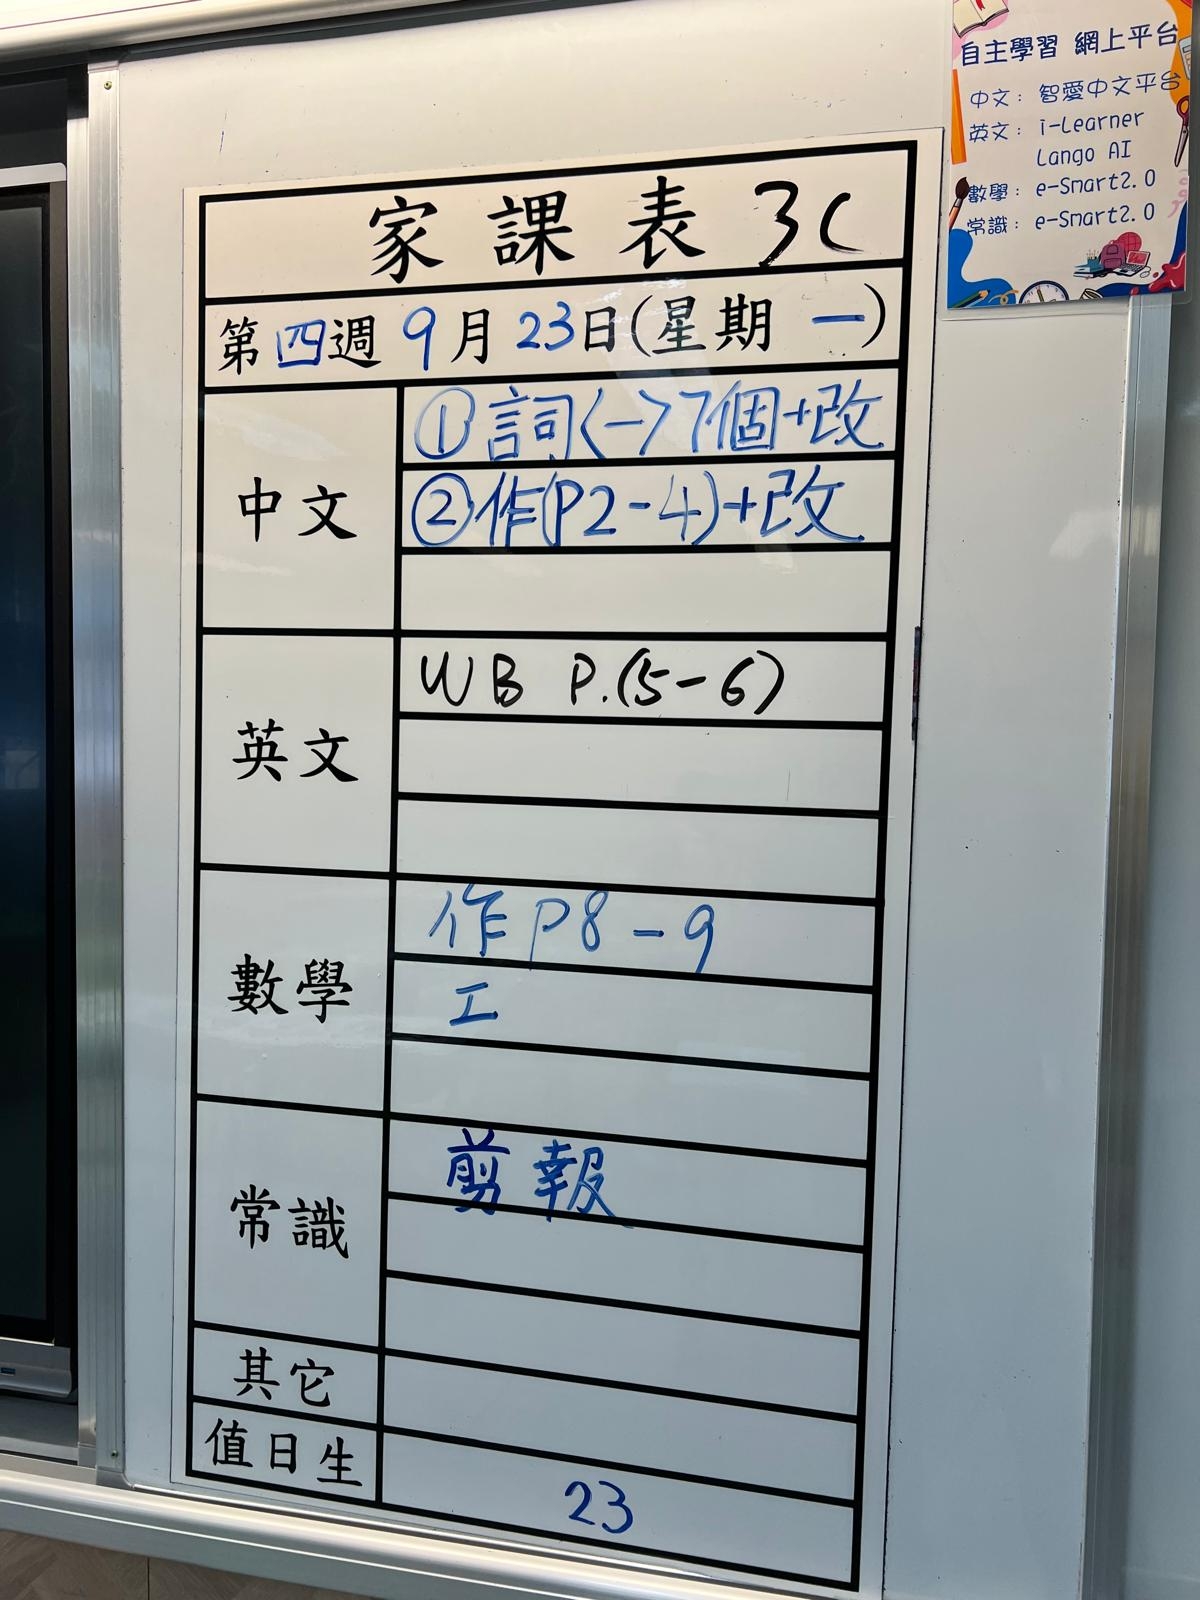 自主學習 網上平台
中文： 智愛中文平台
英文： i-Learner
Lango AI
數學： e-Smart2.0
常識： e-Smart2.0
家課表 3C
第四週 9月23日(星期一)
中文
①詞<一>7個+改
②作(P2-4)+改
英文
WB P.(5-6)
數學
作P8-9
工
常識
剪報
其它
值日生
23